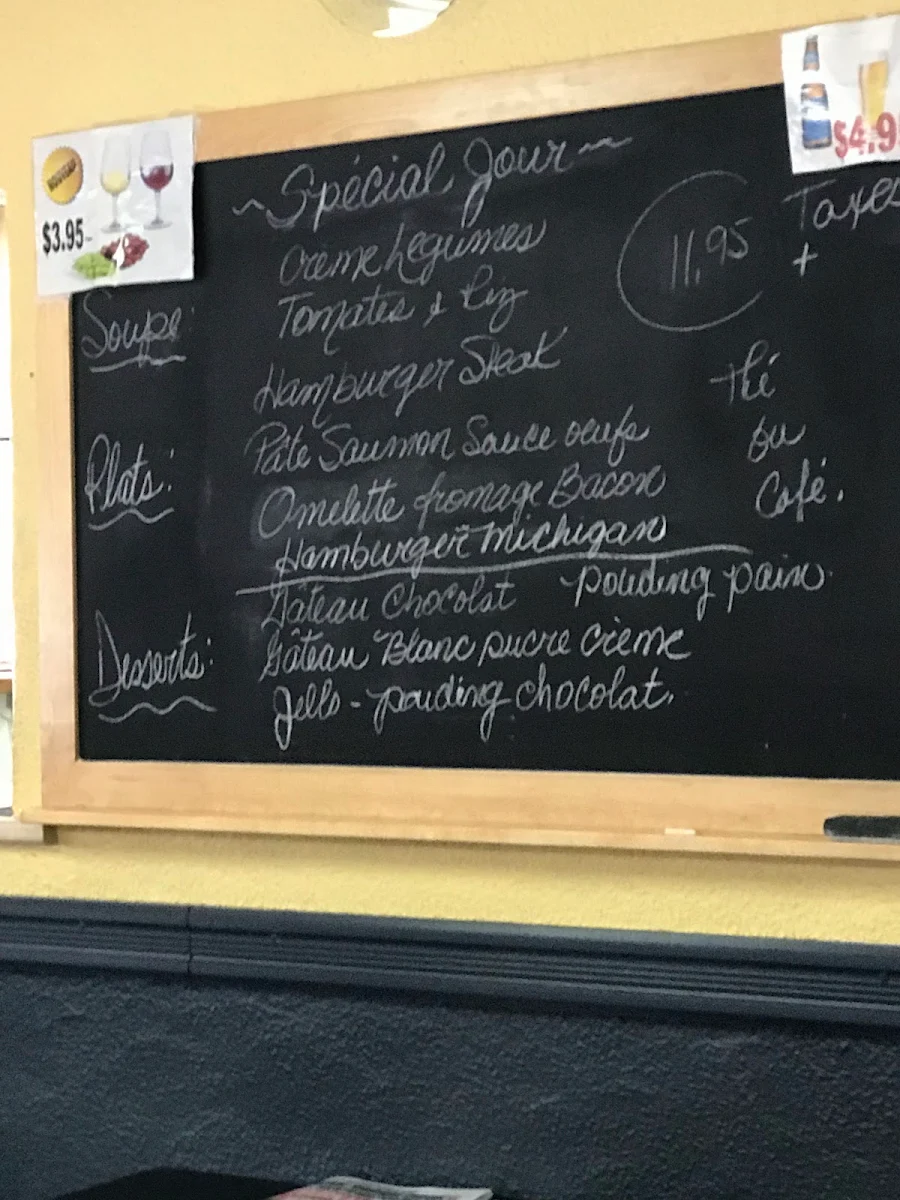 NOUVEAU
$3.95
$4.9
~Spécial Jour~
Soupe:
Crème Légumes
Tomates & Riz
11.95
Taxes
+
Plats:
Hamburger Steak
Pâté Saumon Sauce oeufs
Omelette fromage Bacon
Hamburger Michigan
Thé
ou
Café.
Desserts:
Gâteau Chocolat pouding pain
Gâteau Blanc sucre crème
Jello - pouding chocolat.